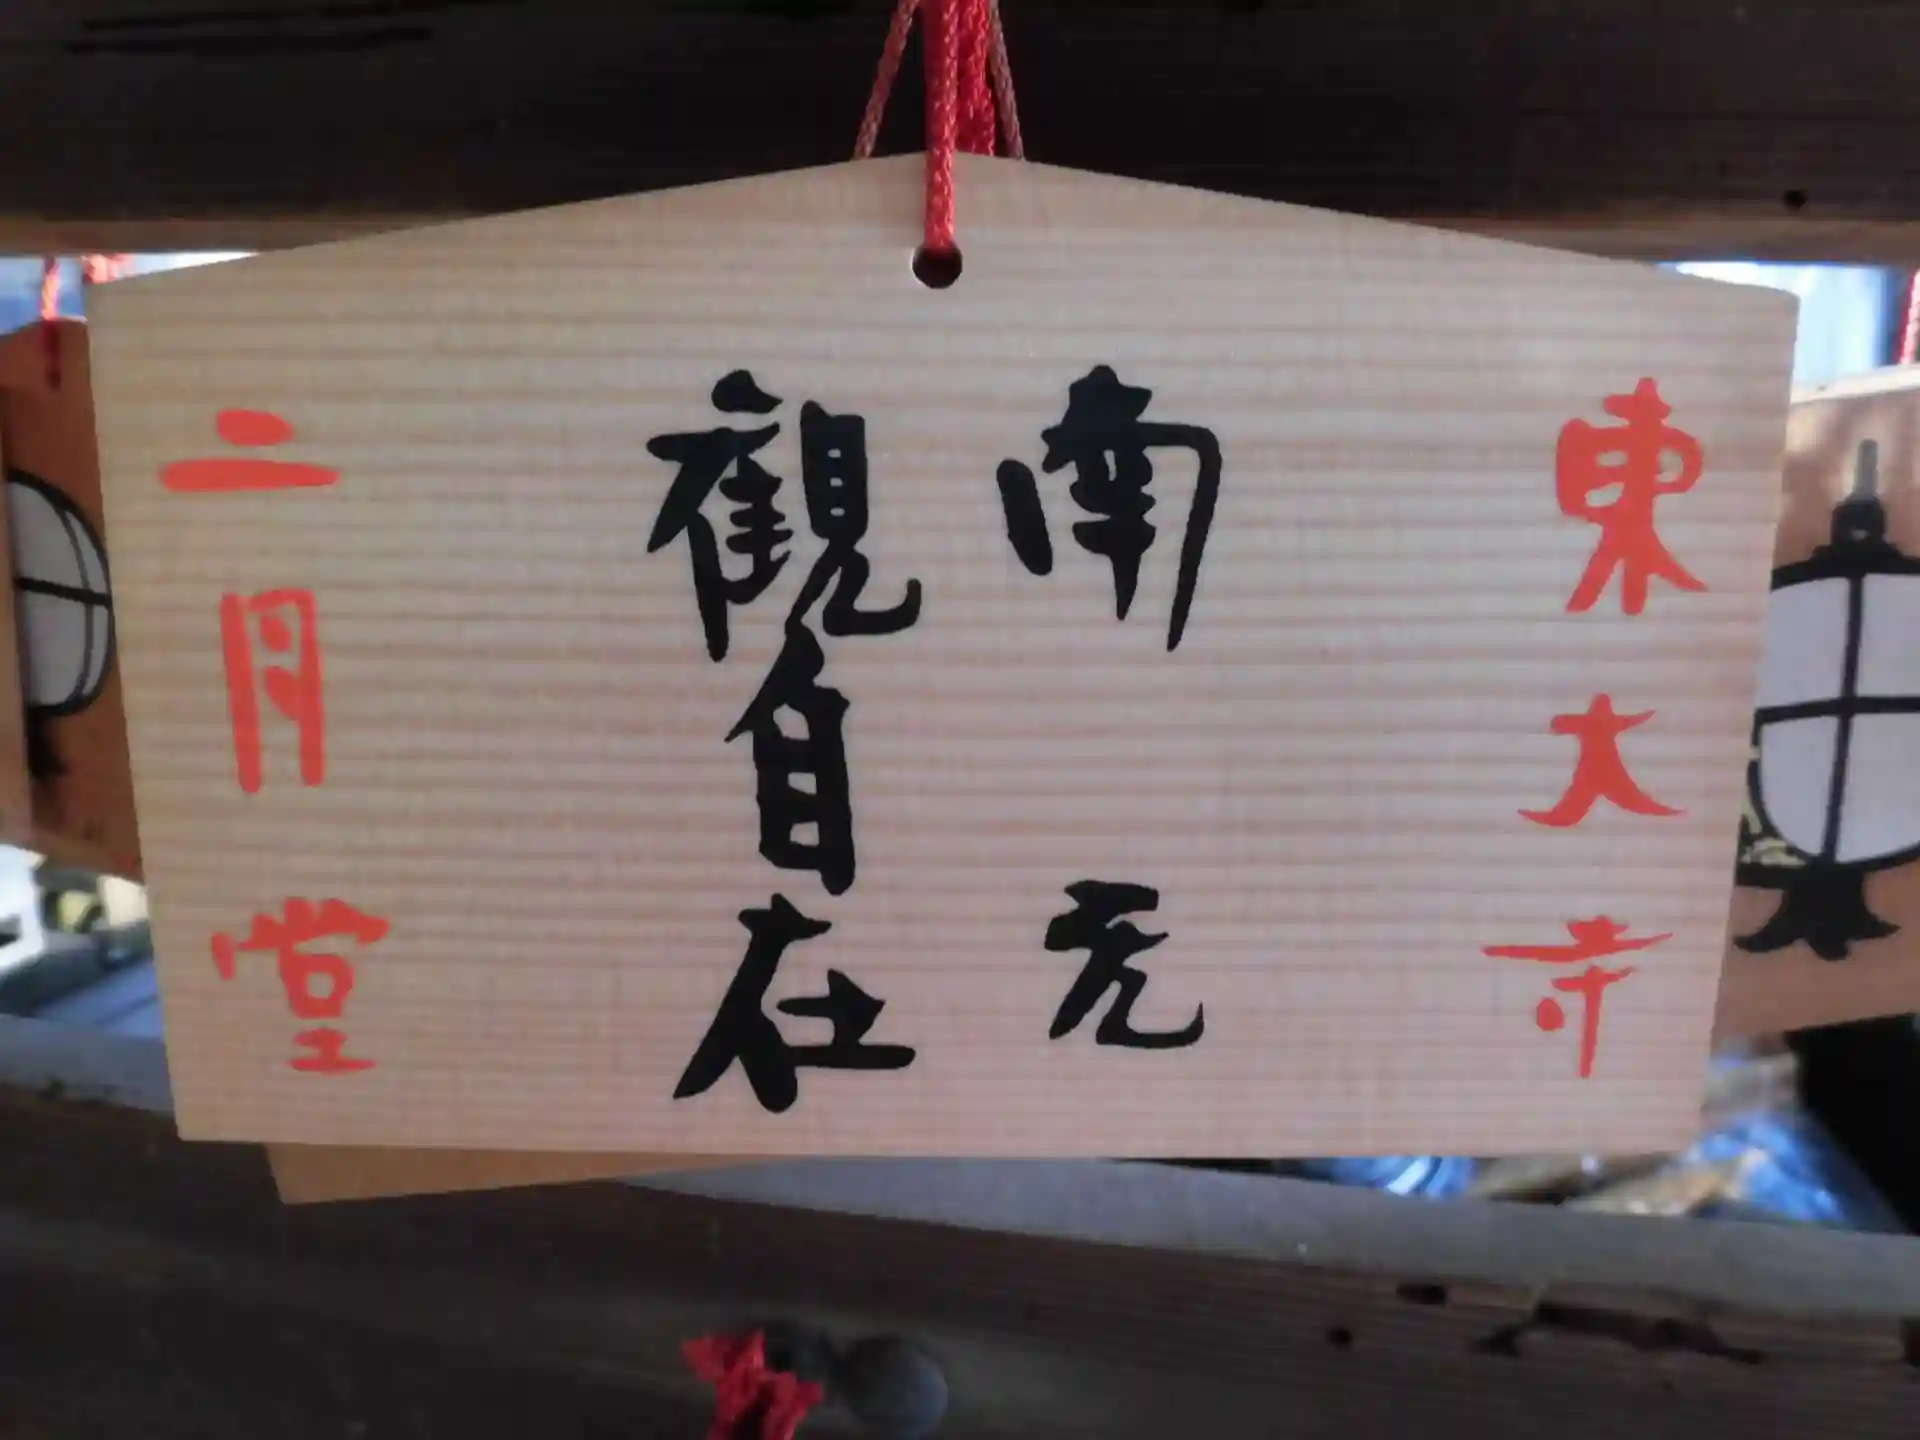 東大寺
南无
観自在
二月堂